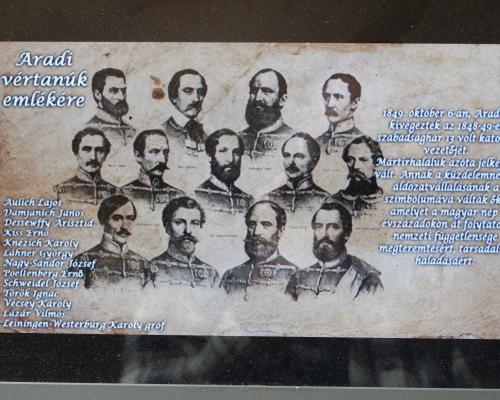 Aradi
vértanúk
emlékére
1849. október 6-án, Arad
kivégezték az 1848-49-e
szabadságharc 13 volt kato
vezetőjét.
Mártírhaláluk azóta jelké
vált. Annak a küzdelemne
áldozatvállalásának a
szimbólumává váltak ők
amelyet a magyar nép
évszázadokon át folytato
nemzeti függetlensége
megteremtésért, társadal
haladásáért
Aulich Lajos
Damjanich János
Dessewffy Arisztid
Kiss Ernő
Knezich Károly
Láhner György
Nagy-Sándor József
Poeltenberg Ernő
Schweidel József
Török Ignác
Vécsey Károly
Lázár Vilmos
Leiningen-Westerburg Károly gróf